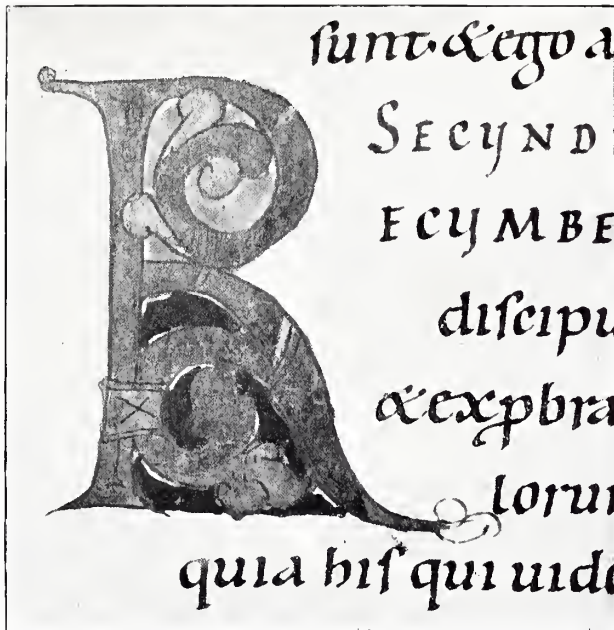 sunt·&ego a
SECUND
R
ECUMBE
discipu
&exp̱bra
lorum
quia his qui uide